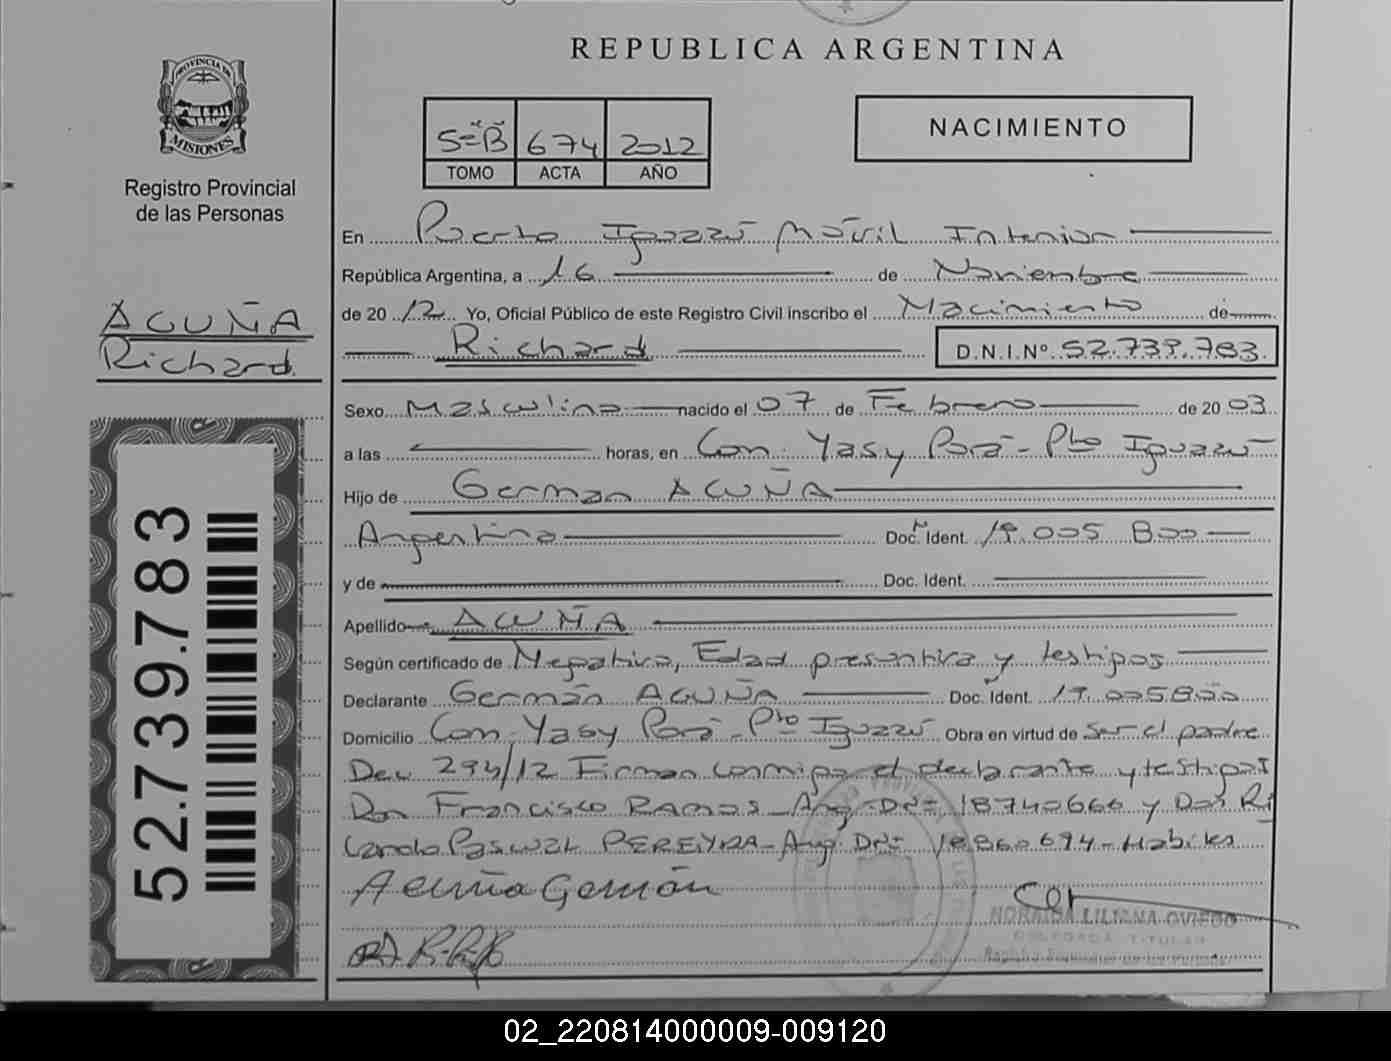 REPUBLICA ARGENTINA
PROVINCIA DE
MISIONES
Registro Provincial
de las Personas
5="B" 674 2012
TOMO ACTA AÑO
NACIMIENTO
En Puerto Iguazú Móvil Interior
República Argentina, a 16 de Noviembre
de 20 12 Yo, Oficial Público de este Registro Civil inscribo el Nacimiento de
Richard D.N.I.Nº 52.739.783
ACUÑA
Richard
Sexo Masculino nacido el 07 de Febrero de 20 03
a las horas, en Com. Yasy Porá - Pto Iguazú
Hijo de German ACUÑA
Argentino Doc. Ident. 19.005 800
y de Doc. Ident.
Apellido ACUÑA
Según certificado de Negativa, Edad presuntiva y testigos
Declarante Germán ACUÑA Doc. Ident. 19.005800
Domicilio Com. Yasy Porá - Pto Iguazú Obra en virtud de Ser el padre
294/12 Firman conmigo el declarante y testigos
Don Francisco RAMOS - Arg. DNI= 18740666 y Don Ri
cardo Pascual PEREYRA - Arg. DNI=
Acuña Germán
LILIANA OVIEDO
DELEGADA TITULAR
52.739.783
02_220814000009-009120